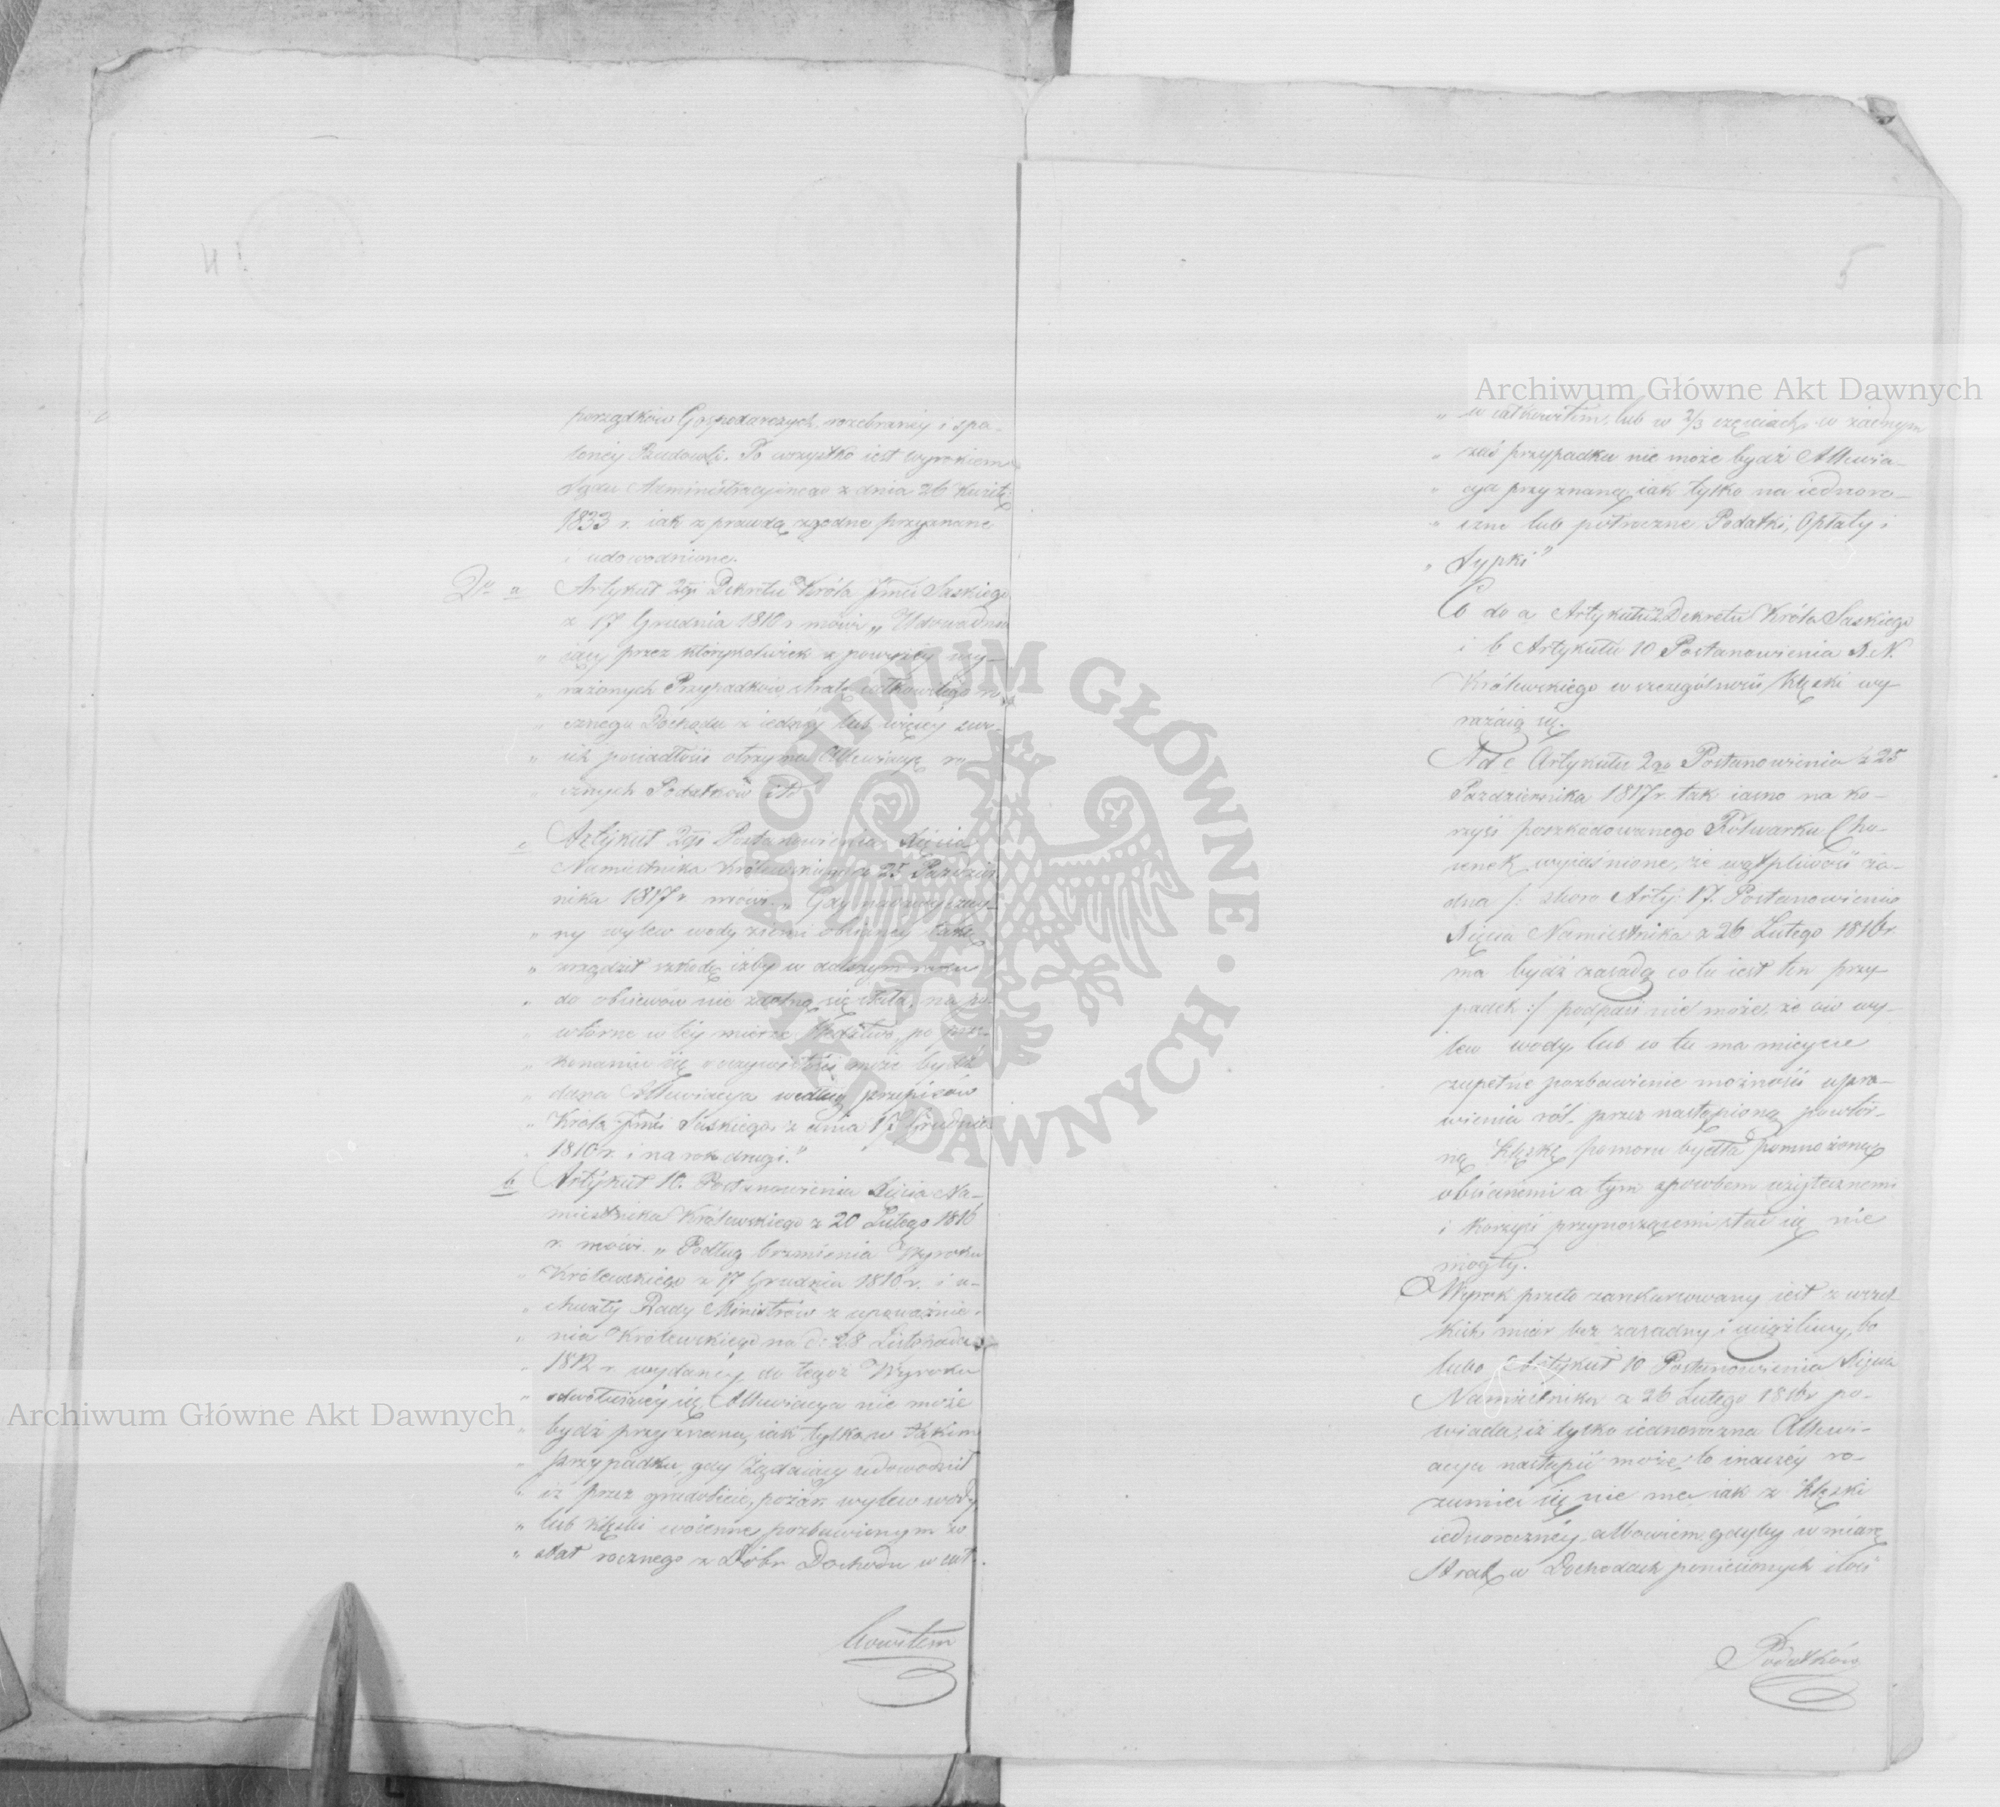 5
Archiwum Główne Akt Dawnych
porządków Gospodarczych, rozebraniey i spa-
loney Budowli. To wszystko iest wyrokiem
Sądu Administracyinego z dnia 26 Kwiet:
1833 r. iak z prawdą zgodne przyznane
i udowodnione.
2do a Artykuł 2gi Dekretu Króla Jmći Saskiego
z 17 Grudnia 1810 r mówi „ Udowadnia
„ iący przez którykolwiek z powyżéy wy-
„ rażonych Przypadków stratę całkowitego ro
„ cznego Dochodu z iednéy lub więcéy swo-
„ ich posiadłości otrzyma Allewiacyę ro
„ cznych Podatków itd
c Artykuł 2gi Postanowienia Xięcia
Namiestnika Królewskiego z 25 Paździer
nika 1817 r. mówi. „ Gdy nadzwyczay-
„ ny wylew wody ziemi obsianey takę
„ zrządził szkodę iżby w dalszym roku
„ do obsiewów nie zdolną się stała, na po-
„ wtórne w tey mierze Śledztwo, po prze-
„ konaniu się o rzeczywistości może bydź
„ dana Allewiacya według przepisów
„ Króla Jmći Saskiego z dnia 17 Grudnia
„ 1810 r. i na rok drugi."
b Artykuł 10. Postanowienia Xięcia Na-
miestnika Królewskiego z 20 Lutego 1816
r. mówi. „ Podług brzmienia Wyroku
„ Królewskiego z 17 Grudnia 1810 r. i u-
„ chwały Rady Ministrów z upoważnie-
„ nia Królewskiego na d: 28 Listopada
„ 1812 r. wydaney do tegoż Wyroku
„ odwołuiącey się, Allewiacya nie może
„ bydź przyznana, iak tylko w takim
„ przypadku, gdy Żądaiący udowodnił
„ iż przez gradobicie, pożar, wylew wody
„ lub klęski woienne pozbawionym zo
„ stał rocznego z Dóbr Dochodu w cał-
kowitem
„ w całkowitem, lub w 2/3 częściach, w żadnym
„ zaś przypadku nie może bydź Allewia-
„ cya przyznaną, iak tylko na iednoro-
„ czne lub półroczne Podatki, Opłaty i
„ Sypki"
Co do a Artykułu 2 Dekretu Króla Saskiego
i b Artykułu 10 Postanowienia X. N.
Królewskiego w szczególności Klęski wy-
rażaią się.
Ad c Artykułu 2go Postanowienia z 25
Pazdziernika 1817 r. tak iasno na ko-
rzyść poszkodowanego Folwarku Cho-
wyiaśnione, że wątpliwość ża-
dna /: skoro Arty: 17. Postanowienia
Xięcia Namiestnika z 26 Lutego 1816 r.
ma bydź zasadą co tu iest ten przy-
padek :/ podpaść nie może, że ów wy-
lew wody, lub co tu ma mieysce
zupełne pozbawienie możności upra-
wienia ról, przez nastąpioną powtór-
ną klęskę pomoru bydła pomnożoną
obsianemi a tym sposobem użytecznemi
i korzyść przynoszącemi stać się nie
mogły.
Wyrok przeto zaskarżony iest z wszel-
kich miar bez zasadny i uciążliwy, bo
lubo Artykuł 10 Postanowienia Xięcia
Namiestnika z 26 Lutego 1816 r po-
wiada, iż tylko iednoroczna Allewi-
acya nastąpić może, to inaczéy ro-
zumieć się nie ma iak z klęski
iednorocznéy, albowiem gdyby w miarę
Strat w Dochodach poniesionych ilość
Podatków
Archiwum Główne Akt Dawnych
ARCHIWUM GŁÓWNE
AKT DAWNYCH